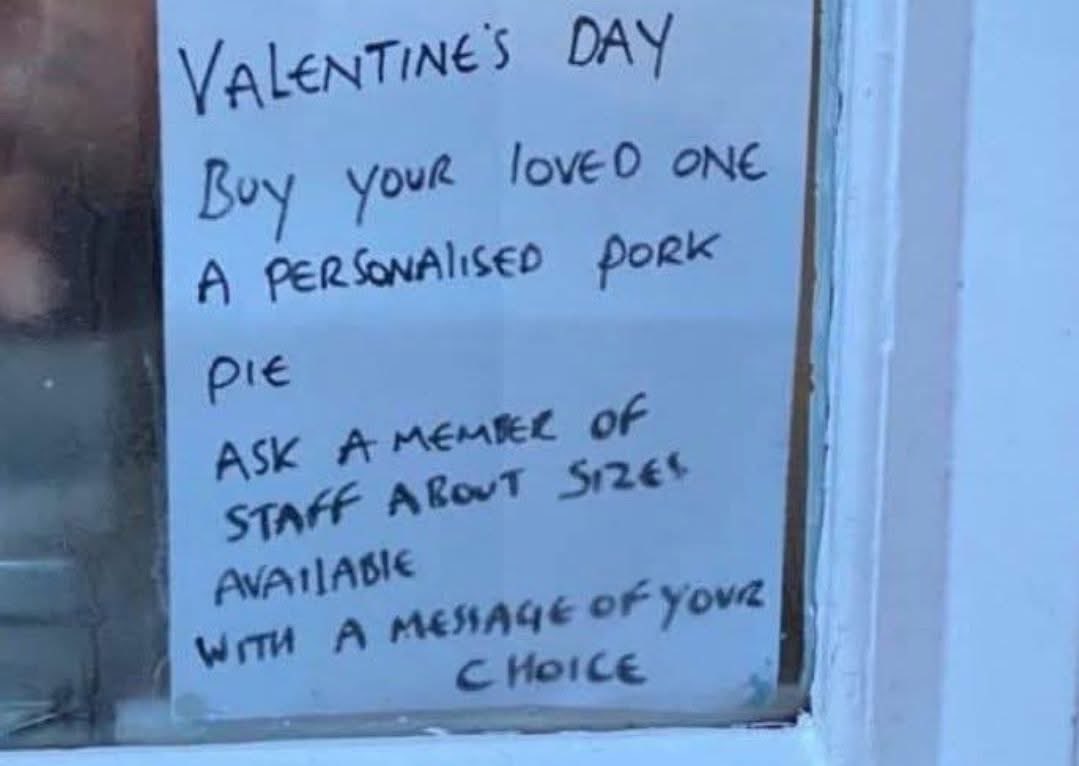 VALENTINE'S DAY
BUY YOUR LOVED ONE
A PERSONALISED PORK
PIE
ASK A MEMBER OF
STAFF ABOUT SIZES
AVAILABLE
WITH A MESSAGE OF YOUR
CHOICE